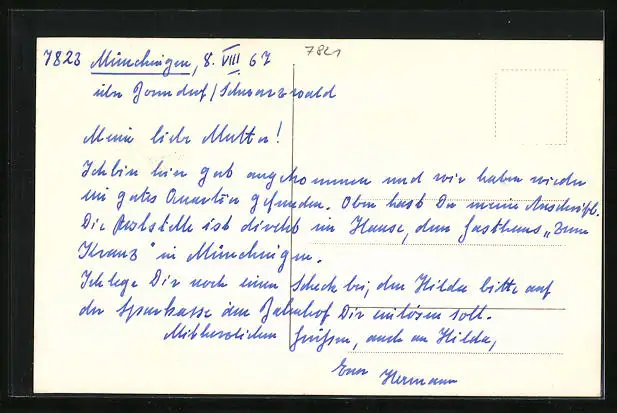 7823 Münchingen, 8. VIII 67
7821
über Bonndorf/Schwarzwald
Meine liebe Mutter!
Ich bin hier gut angekommen und wir haben wieder
ein gutes Quartier gefunden. Oben hast Du meine Anschrift.
Die Poststelle ist direkt im Hause, dem Gasthaus „Zum
Kranz" in Münchingen.
Ich lege Dir noch einen Scheck bei, den Hilde bitte auf
der Sparkasse am Bahnhof Dir einlösen soll.
Mit herzlichen Grüßen, auch an Hilde,
Euer Hermann